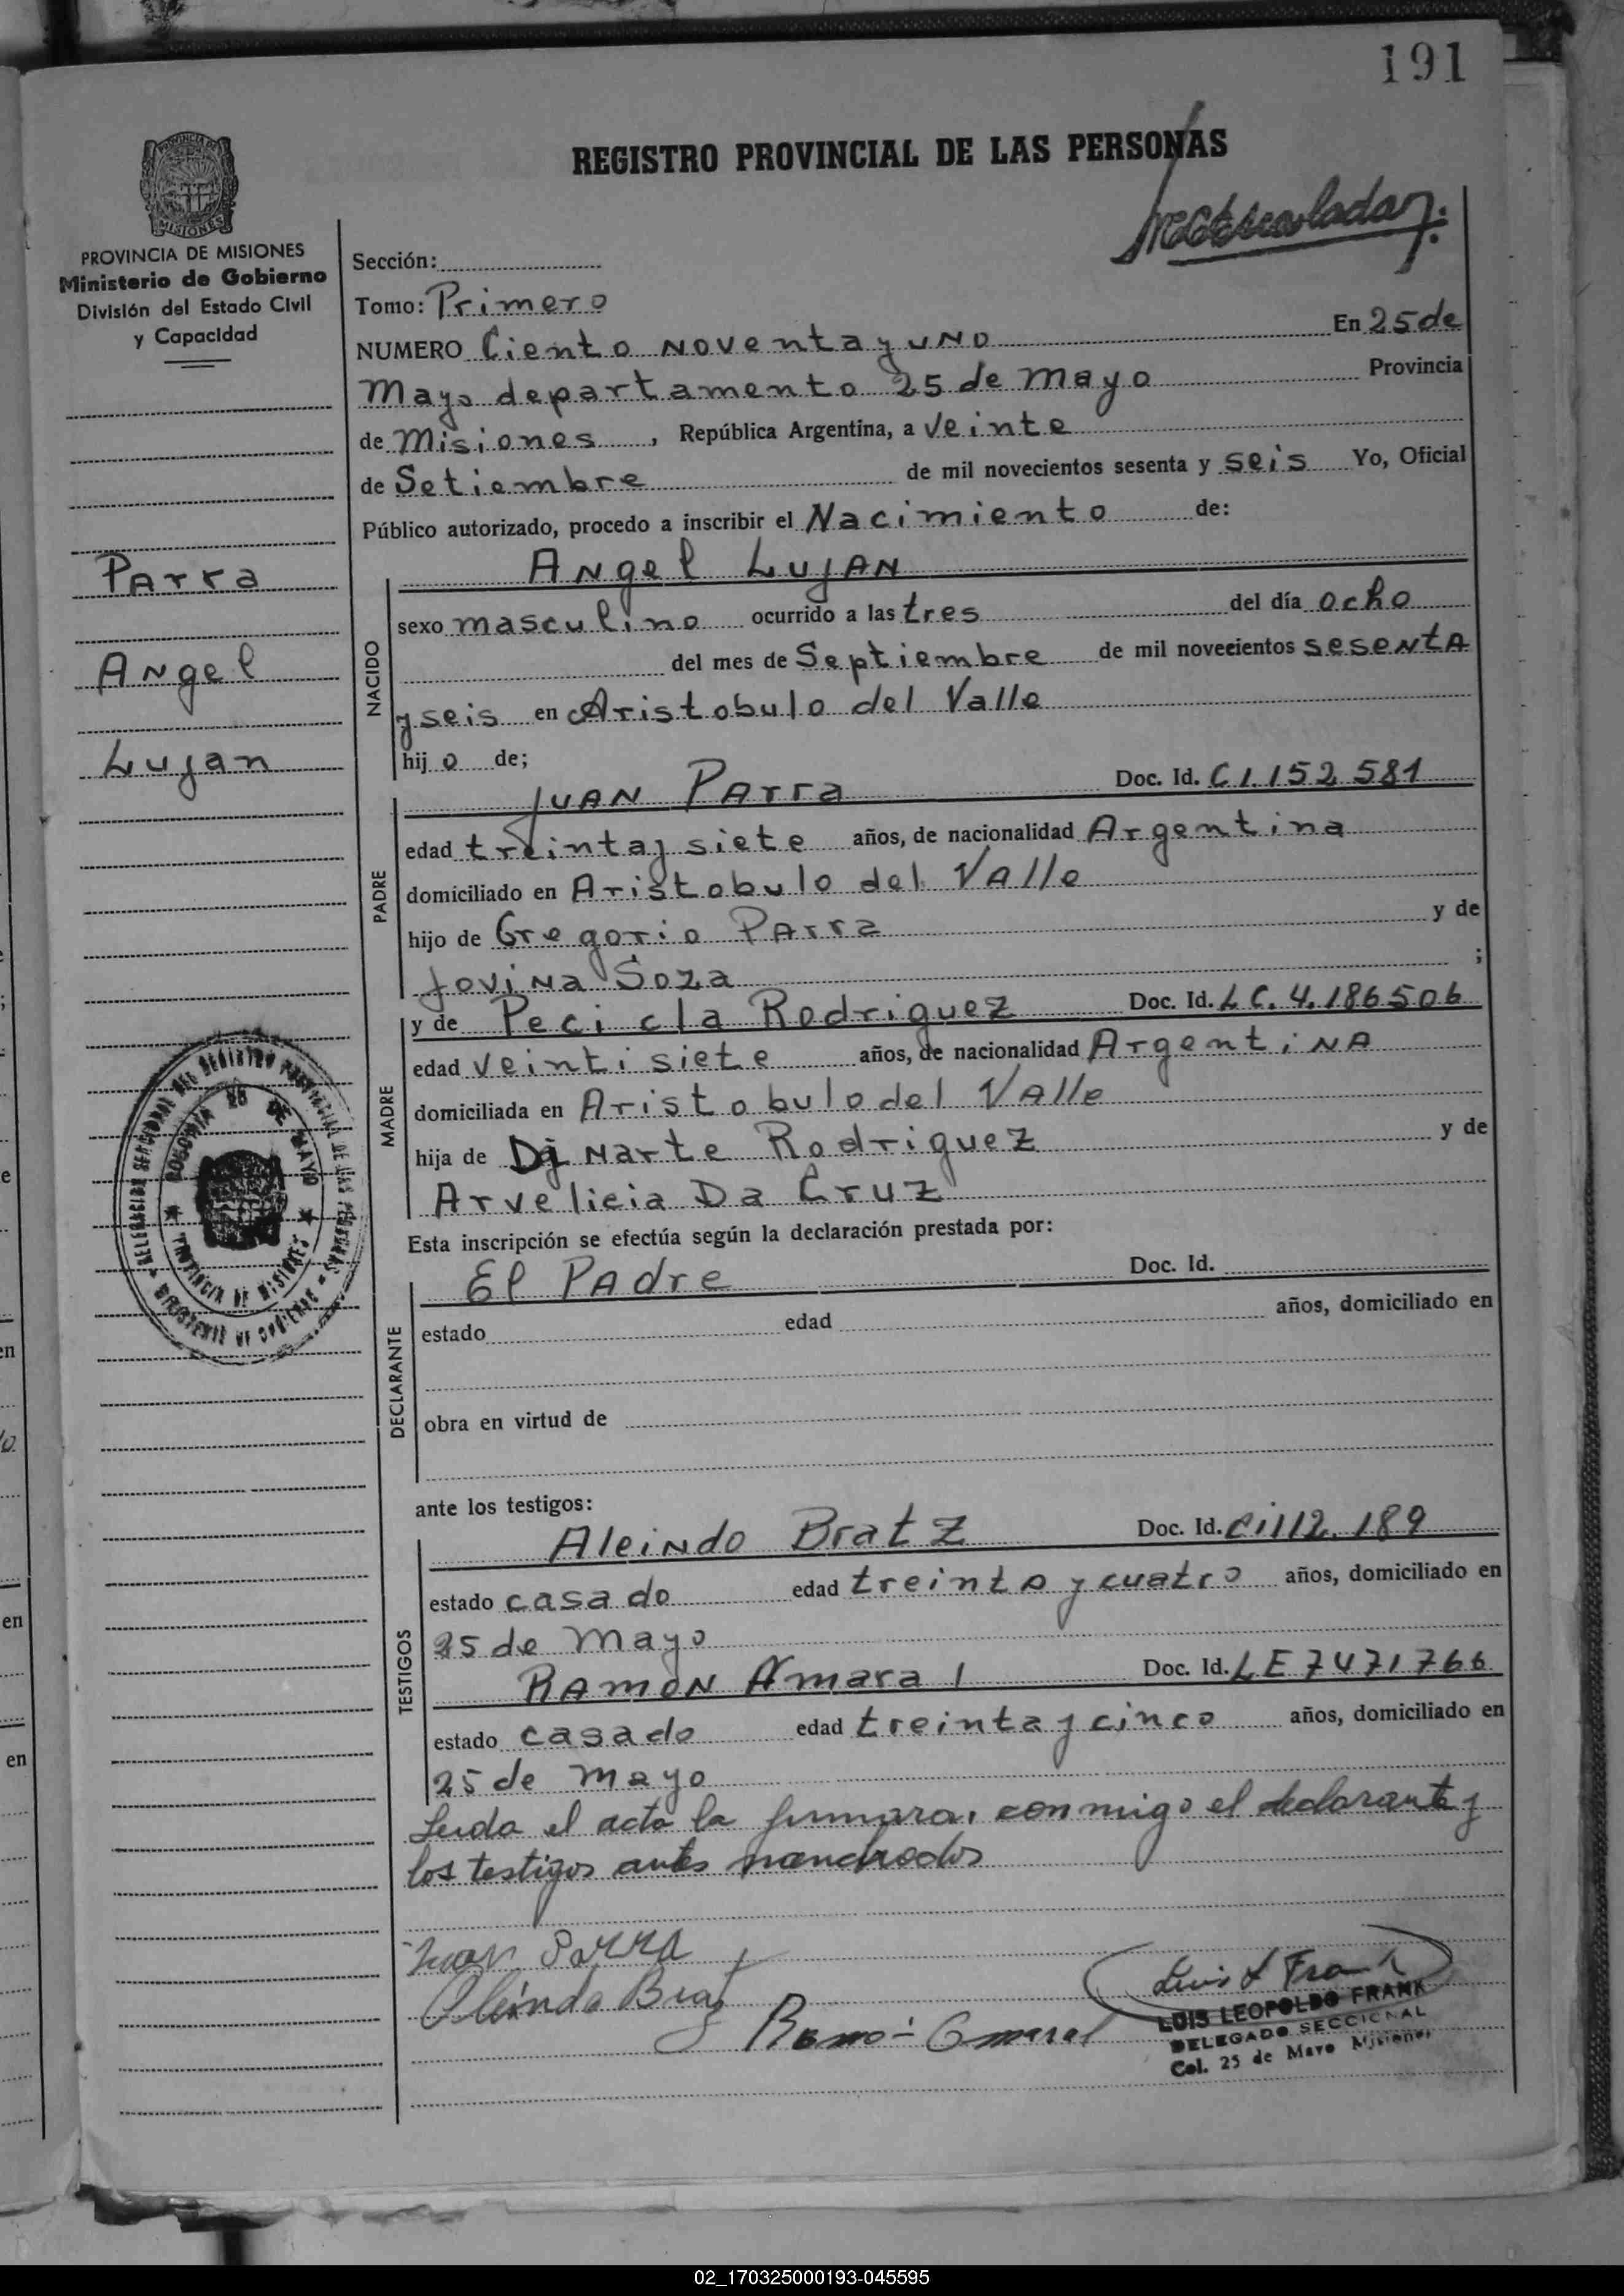 191
REGISTRO PROVINCIAL DE LAS PERSONAS
PROVINCIA DE MISIONES
Ministerio de Gobierno
División del Estado Civil
y Capacidad
Parra
Angel
Lujan
Sección:
Tomo: Primero
NUMERO Ciento Noventa y uno En 25 de
Mayo departamento 25 de Mayo Provincia
de Misiones, República Argentina, a veinte
de Setiembre de mil novecientos sesenta y seis Yo, Oficial
Público autorizado, procedo a inscribir el Nacimiento de:
Angel Lujan
NACIDO
sexo masculino ocurrido a las tres del día ocho
del mes de Septiembre de mil novecientos sesenta
y seis en Aristobulo del Valle
hijo de;
Juan Parra Doc. Id. C1.152 581
PADRE
edad treinta y siete años, de nacionalidad Argentina
domiciliado en Aristobulo del Valle
hijo de Gregorio Parra y de
Jovina Soza ;
y de Peci cla Rodriguez Doc. Id. LC. 4.186506
MADRE
edad veinti siete años, de nacionalidad Argentina
domiciliada en Aristobulo del Valle
hija de Dinarte Rodriguez y de
Arvelicia Da Cruz
Esta inscripción se efectúa según la declaración prestada por:
El Padre Doc. Id.
DECLARANTE
estado edad años, domiciliado en
obra en virtud de
ante los testigos:
Aleindo Bratz Doc. Id. Ci112.189
TESTIGOS
estado casado edad treinta y cuatro años, domiciliado en
25 de Mayo
Ramon Amaral Doc. Id. LE 7471766
estado casado edad treinta y cinco años, domiciliado en
25 de Mayo
Leida el acta la firmara, conmigo el declarante y
los testigos antes
Juan Parra
Aleindo Bratz
Ramón Amaral
Luis L Frank
LUIS LEOPOLDO FRANK
DELEGADO SECCIONAL
Col. 25 de Mayo Misiones
02_170325000193-045595